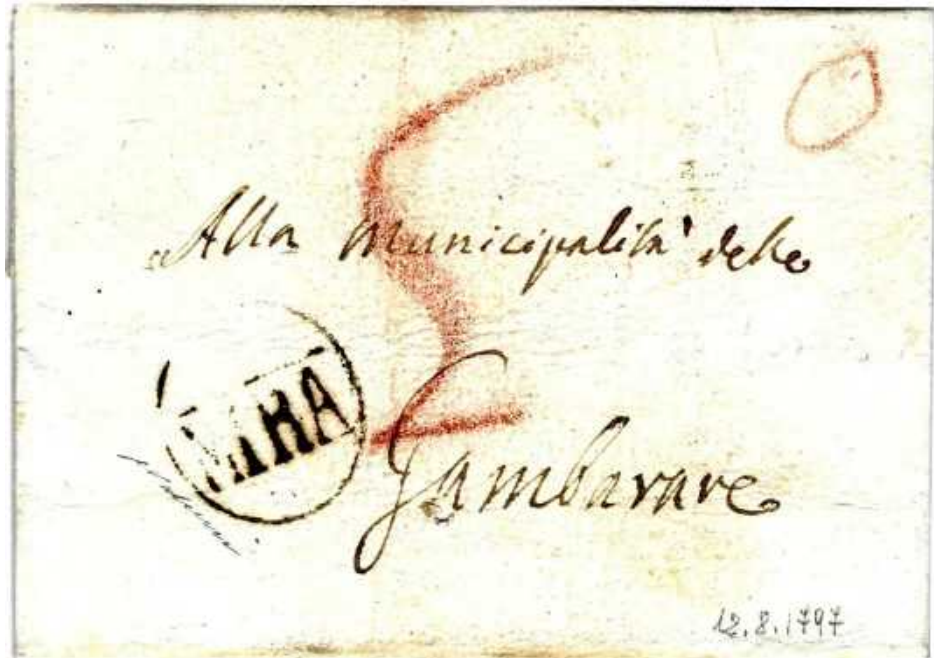 Alla Municipalità delle
MIRA
Gambarare
12.8.1797